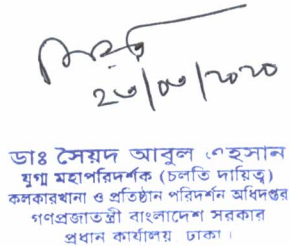 ২৩/০৩/২০২০
ডাঃ সৈয়দ আবুল এহসান
যুগ্ম মহাপরিদর্শক (চলতি দায়িত্ব)
কলকারখানা ও প্রতিষ্ঠান পরিদর্শন অধিদপ্তর
গণপ্রজাতন্ত্রী বাংলাদেশ সরকার
প্রধান কার্যালয় ঢাকা।